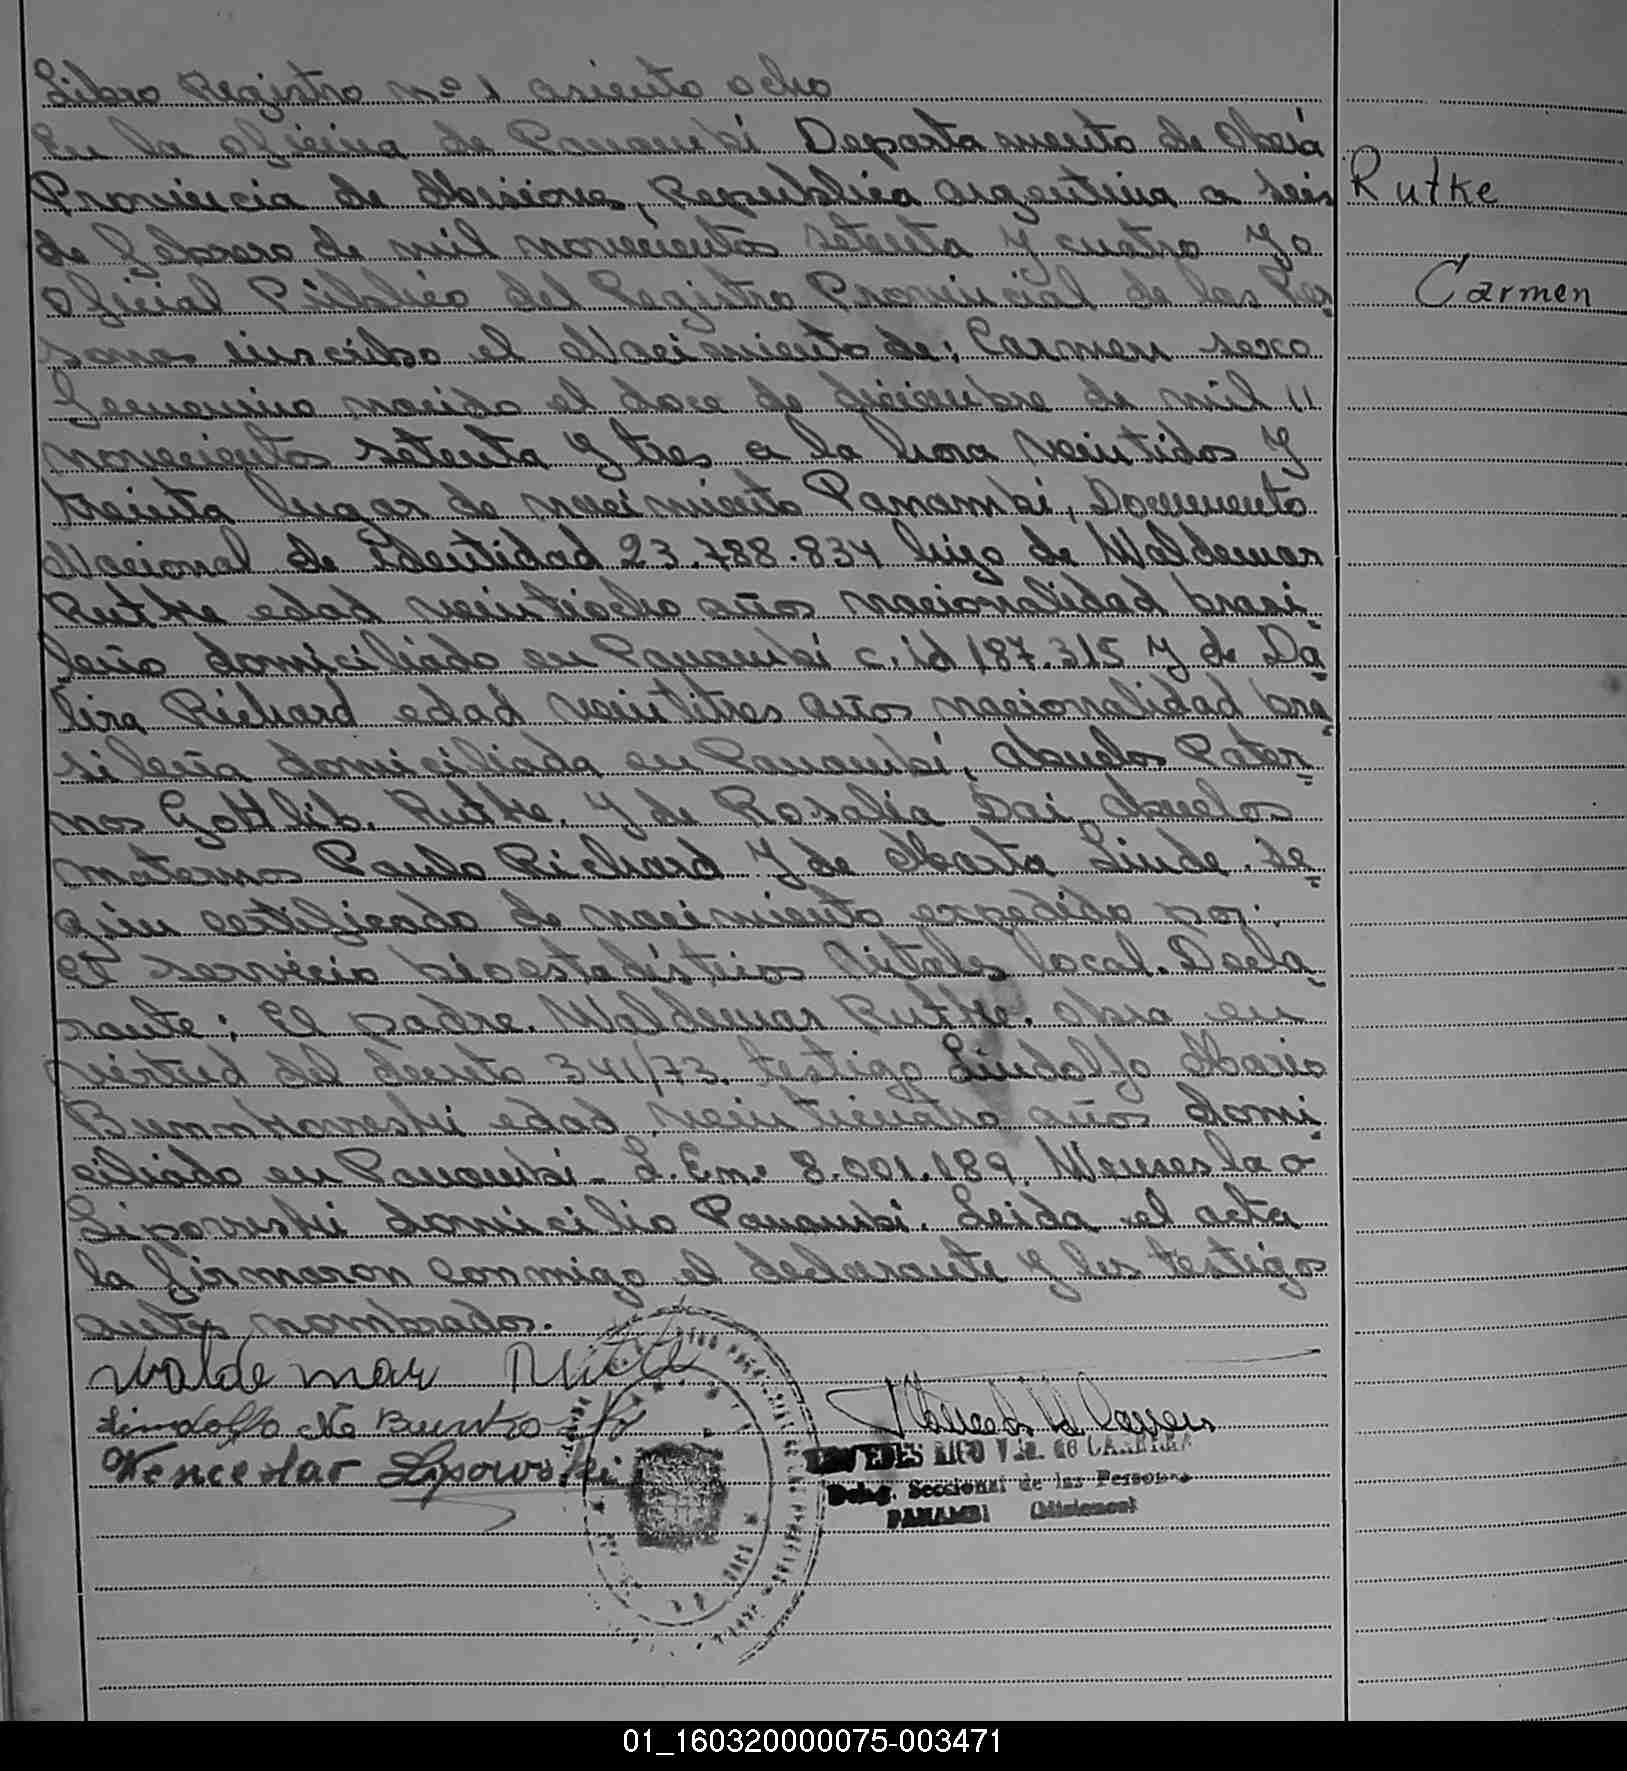 Libro Registro nº 1 asiento ocho
En la oficina de Panambí Departamento de Oberá
Provincia de Misiones, Republica Argentina a seis
de febrero de mil novecientos setenta y cuatro Yo
Oficial Público del Registro Provincial de las Per-
sonas inscribo el Nacimiento de: Carmen sexo
femenino nacido el doce de diciembre de mil "
novecientos setenta y tres a la hora veintidos y
treinta lugar de nacimiento Panambi, Documento
Nacional de Identidad 23.788.834 hijo de Waldemar
Rutke edad veintiocho años nacionalidad brasi
leño domiciliado en Panambí c.id 187.315 y de Da-
lira Richard edad veintitres años nacionalidad bra-
sileña domiciliada en Panambí, Abuelos Pater-
nos Gottlib. Rutke. y de Rosalia Dai Abuelos
maternos Paulo Richard y de Marta Linde. Se-
gún certificado de nacimiento expedido por:
el servicio bioestadístico vitales local. Decla-
rante: El padre. Waldemar Rutke. obra en
virtud del decreto 3411/73. testigo Lindolfo Mario
edad veinticuatro años domi-
ciliado en Panambí - L.En. 8.001.189. Wenseslao
Lipowski domicilio Panambí. Leida el acta
la firmaron conmigo el declarante y los testigos
antes nombrados.
Rutke
Carmen
Waldemar Rutke
Lindolfo
Wenceslao Lipowski
RICO Vda. de
Deleg. Seccional de las Personas
PANAMBI (Misiones)
01_160320000075-003471